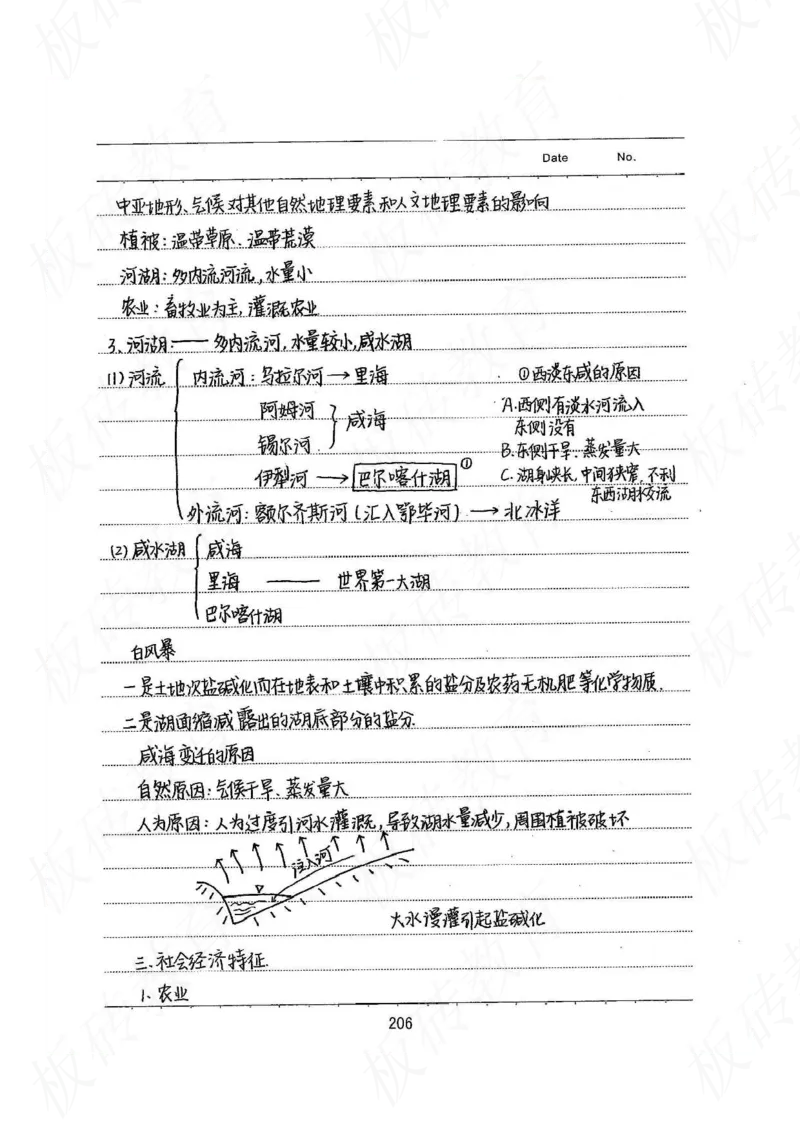 Date No.
中亚地形、气候对其他自然地理要素和人文地理要素的影响
植被:温带草原、温带荒漠
河湖:多内流河流,水量小
农业:畜牧业为主,灌溉农业
3、河湖—— 多内流河,水量较小,咸水湖
(1)河流 内流河:乌拉尔河→里海
阿姆河
锡尔河
咸海
伊犁河→巴尔喀什湖①
外流河:额尔齐斯河(汇入鄂毕河)→北冰洋
①西淡东咸的原因
A.西侧有淡水河流入
东侧没有
B.东侧干旱、蒸发量大
C.湖身狭长,中间狭窄,不利
东西湖水交流
(2)咸水湖 咸海
里海 —— 世界第一大湖
巴尔喀什湖
白风暴
一是土地次盐碱化而在地表和土壤中积累的盐分及农药无机肥等化学物质.
二是湖面缩减露出的湖底部分的盐分.
咸海变迁的原因
自然原因:气候干旱、蒸发量大
人为原因:人为过度引河水灌溉,导致湖水量减少,周围植被破坏
注入河
大水漫灌引起盐碱化
三、社会经济特征.
1、农业
206
板砖教育
板砖教育
板砖教育
板砖教育